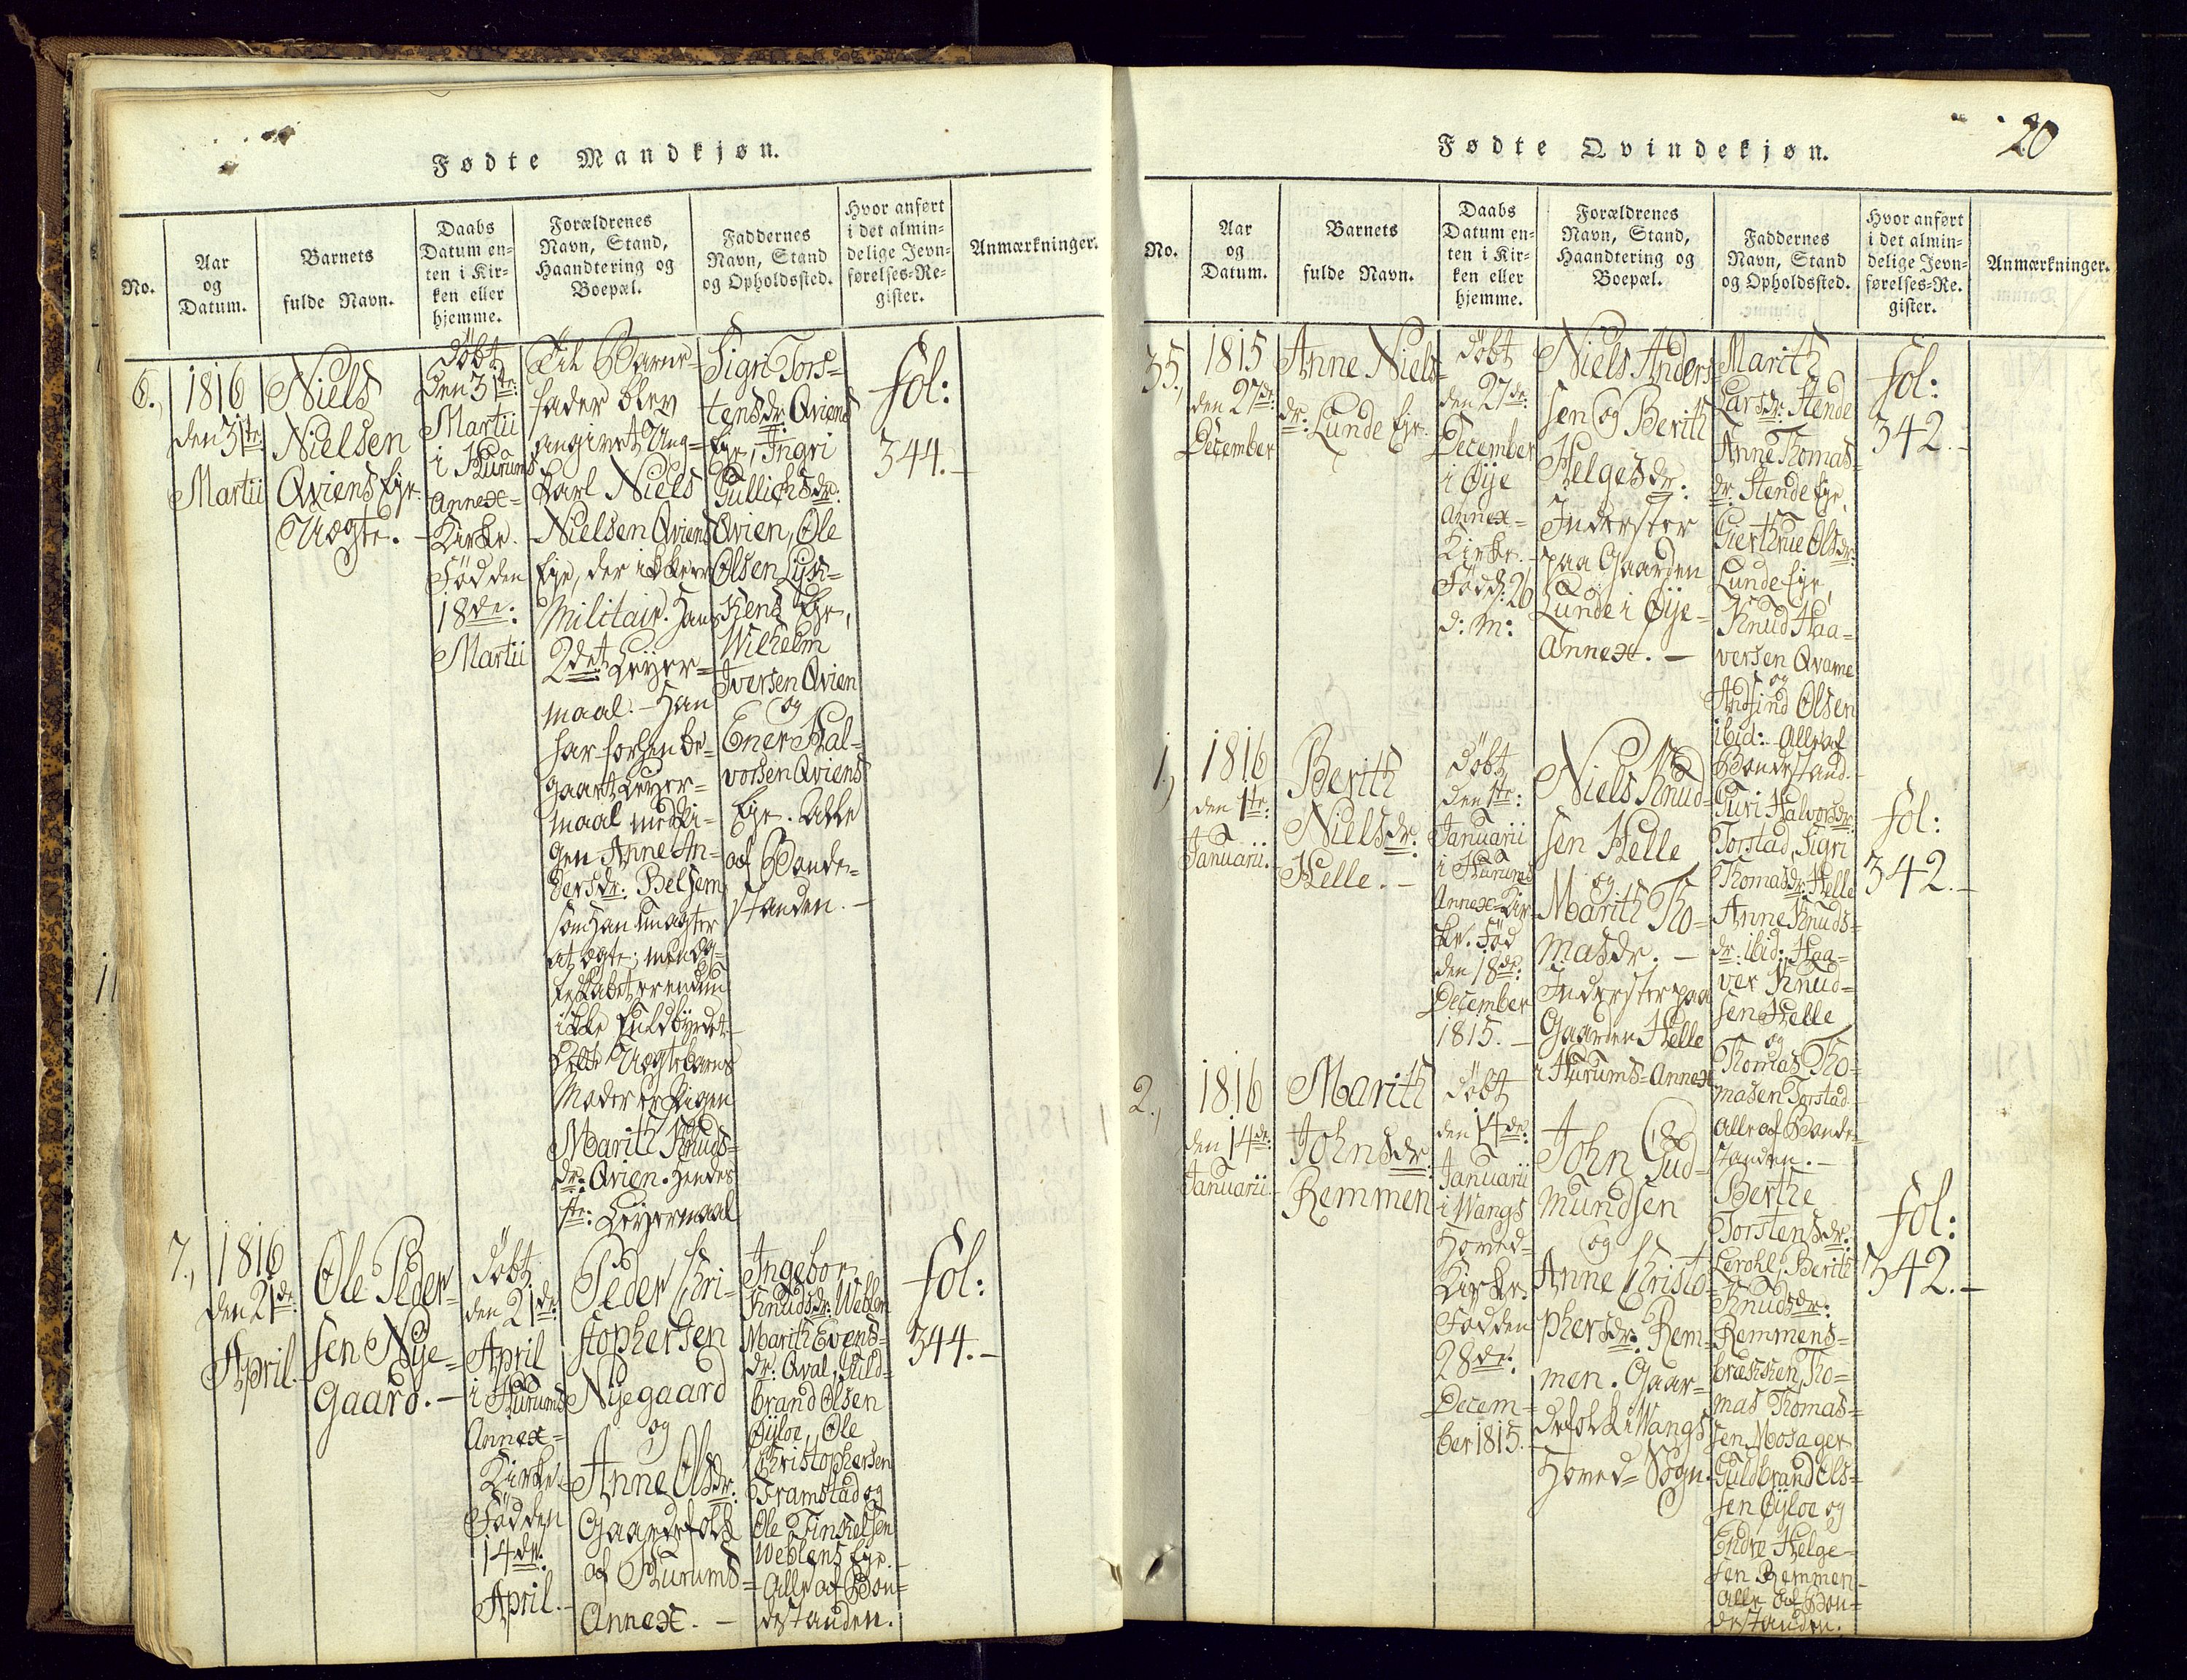 Fødte Mandkjøn.
No.
Aar
og
Datum.
Barnets
fulde Navn.
Daabs
Datum en-
ten i Kir-
ken eller
hjemme.
Forældrenes
Navn, Stand,
Haandtering og
Boepæl.
Faddernes
Navn, Stand
og Opholdssted.
Hvor anført
i det almin-
delige Jevn-
førelses-Re-
gister.
Anmærkninger.
6.,
1816
den 31te
Martii
Niels
Nielsen
Qviens Eje.
Uægte.
döbt
Den 31te:
Martii
i Hurums
Annex=
Kirke.
Föd den
18de:
Martii
Til Barne-
fader blev
angivet Ung-
karl Niels
Nielsen Qviens
Eje, der ikke er
Militair. Hans
2det Leyer=
maal. - Han
har forhen be-
gaaet Leyer-
maal med Pi-
gen Anne An-
dersdr: Belsem
som han
at ægte; men Æg-
teskabet er endnu
ikke fuldbyrdet.
Dette Uægte barns
Moder er Pigen
Marith Knuds-
dr: Qvien. Hendes
1te: Leyermaal
Sigri Tors-
tensdr: Qviens
Eje, Ingri
Gullichsdr:
Qvien, Ole
Olsen
Eje,
Wilhelm
Iversen Qvien
og
Ener Hal-
vorsen Qviens
Eje. Alle
af Bonde-
standen.
fol:
344.
7.,
1816
den 21de
April
Ole Peder-
sen Nye-
gaard.
döbt
den 21de
April
i Hurums
Annex=
Kirke.
Föd den
14de:
April.
Peder Chri-
stophersen
Nyegaard
og
Anne Olsdr:
Gaardefolk
af Hurums-
Annex.
Ingebor
Knudsdr: Weblen
Marith Evens-
dr: Qval, Guld-
brand Olsen
Øÿloe, Ole
Christophersen
Framstad og
Ole Finkelsen
Weblens Eje.
Alle af Bon-
destanden.
fol:
344.
Fødte Qvindekjøn.
20
No.
Aar
og
Datum.
Barnets
fulde Navn.
Daabs
Datum en-
ten i Kir-
ken eller
hjemme.
Forældrenes
Navn, Stand,
Haandtering og
Boepæl.
Faddernes
Navn, Stand
og Opholdssted.
Hvor anført
i det almin-
delige Jevn-
førelses-Re-
gister.
Anmærkninger.
35.,
1815
den 27de:
December
Anne Niels-
dr: Lunde Eje.
döbt
den 27de:
December
i Øÿe
Annex=
Kirke.
Född: 26
d: M:
Niels Anders-
sen og Berith
Helgesdr:
Inderster
paa Gaarden
Lunde i Øÿe-
Annex.
Marith
Larsdr: Stende
Anne Thomas-
dr: Stende Eje,
Gierthrue Olsdr:
Lunde Eje,
Knud Haa-
versen Qvame
og
Andfind Olsen
ibid: Alle af
Bondestand.
fol:
342.
1.,
1816
den 1te:
Januarii.
Berith
Nielsdr:
Helle.
döbt
den 1te:
Januarii
i Hurums
Annex-Kir-
ke. Föd
den 18de:
December
1815.
Niels Knud-
sen Helle
og
Marith Tho-
masdr.
Inderster paa
Gaarden Helle
i Hurums-Annex
Guri Halvorsdr:
Torstad, Sigri
Thomasdr: Helle
Anne Knuds-
dr: ibid: Haa-
ver Knud-
sen Helle
og
Thomas Tho-
masen Torstad.
alle af Bonde-
standen.
fol:
342.
2.,
1816
den 14de:
Januarii.
Marith
Johnsdr:
Remmen
döbt
den 14de:
Januarii
i Wangs
Hoved-
Kirke.
Föd den
28de:
Decem-
ber 1815.
John Gud-
mundsen
og
Anne Christo-
phersdr: Rem-
men. Gaar-
defolk i Wangs
Hoved-Sogn.
Berthe
Torstensdr:
Lerohl, Berith
Knudsdr:
Remmens-
bræhken, Tho-
mas Thomas-
sen Mosager
Guldbrand Ols-
sen Øÿloe og
Endre Helge-
sen Remmen
alle af Bon-
destanden.
fol:
342.